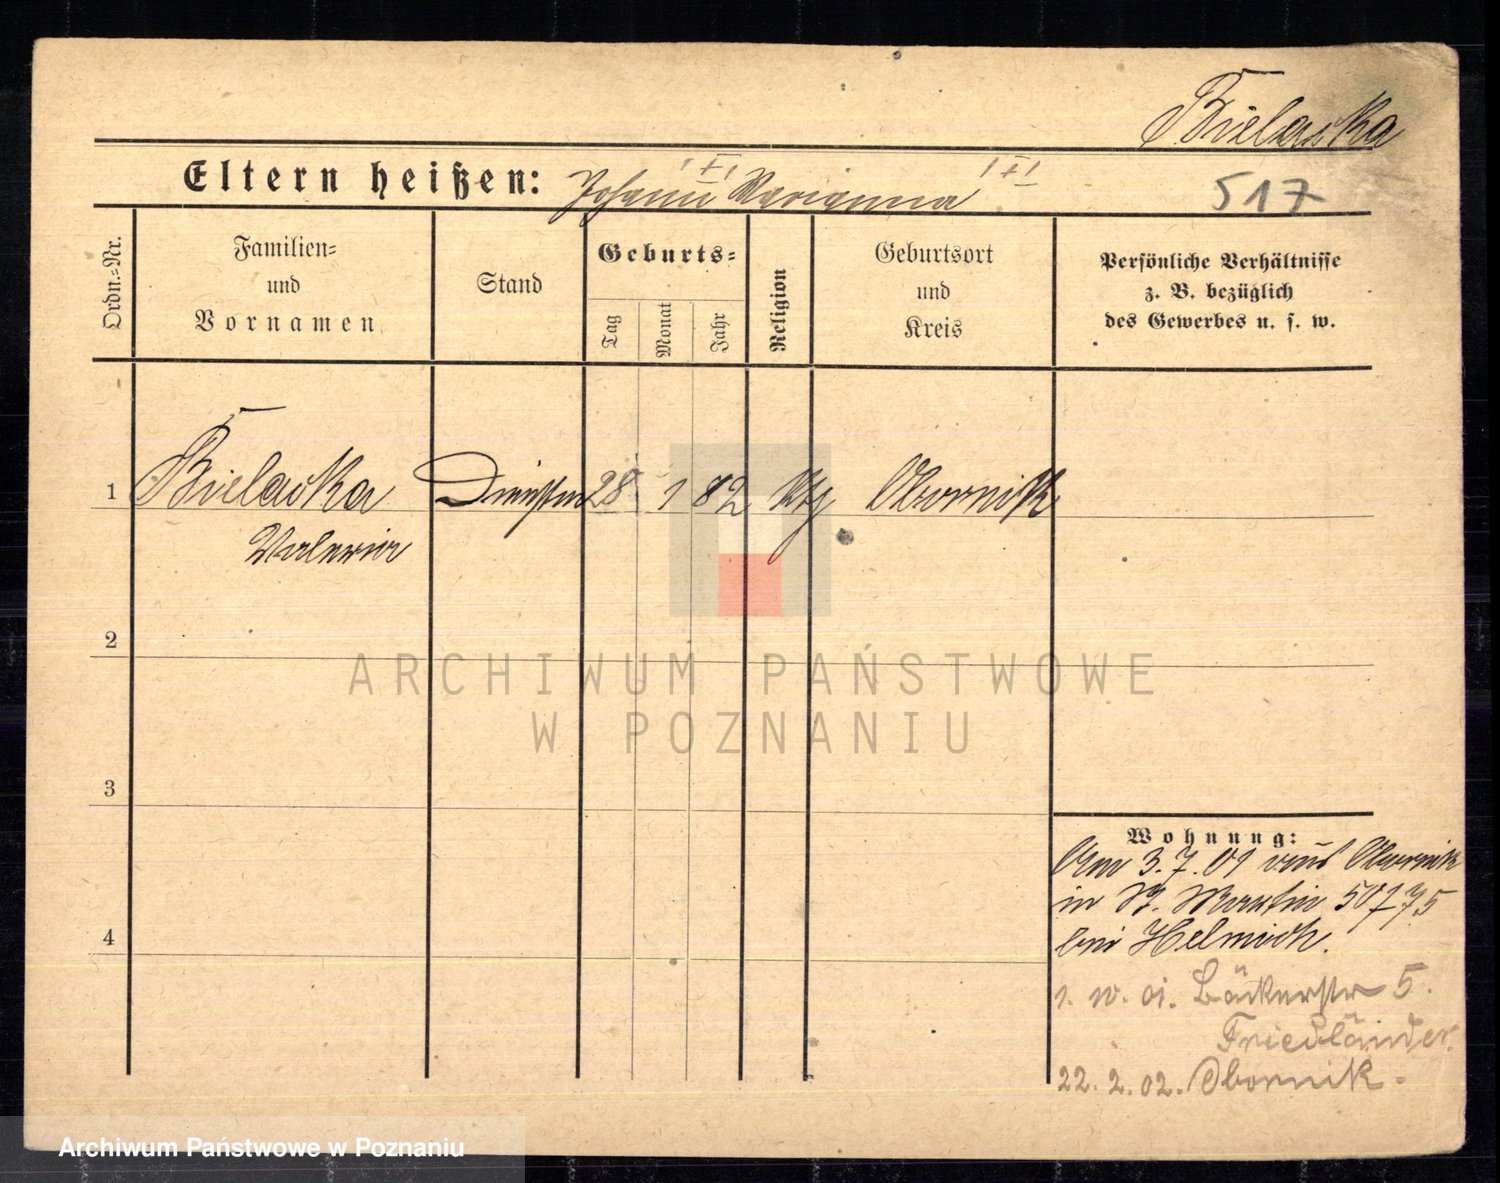 Bielawka
Eltern heißen: Johann Marianna
517
Ordn.=Nr.
Familien=
und
Vornamen
Stand
Geburts=
Tag
Monat
Jahr
Religion
Geburtsort
und
Kreis
Persönliche Verhältnisse
z. B. bezüglich
des Gewerbes u. s. w.
1 Bielawka 28 1 82 Obornik
Valeria
2
ARCHIWUM PAŃSTWOWE
W POZNANIU
3
Wohnung:
Am 3.7.01 aus Obornik
in St. Martin
4
bei Helmich.
Bäckerstr 5.
Friedländer.
22. 2. 02. Obornik.
Archiwum Państwowe w Poznaniu